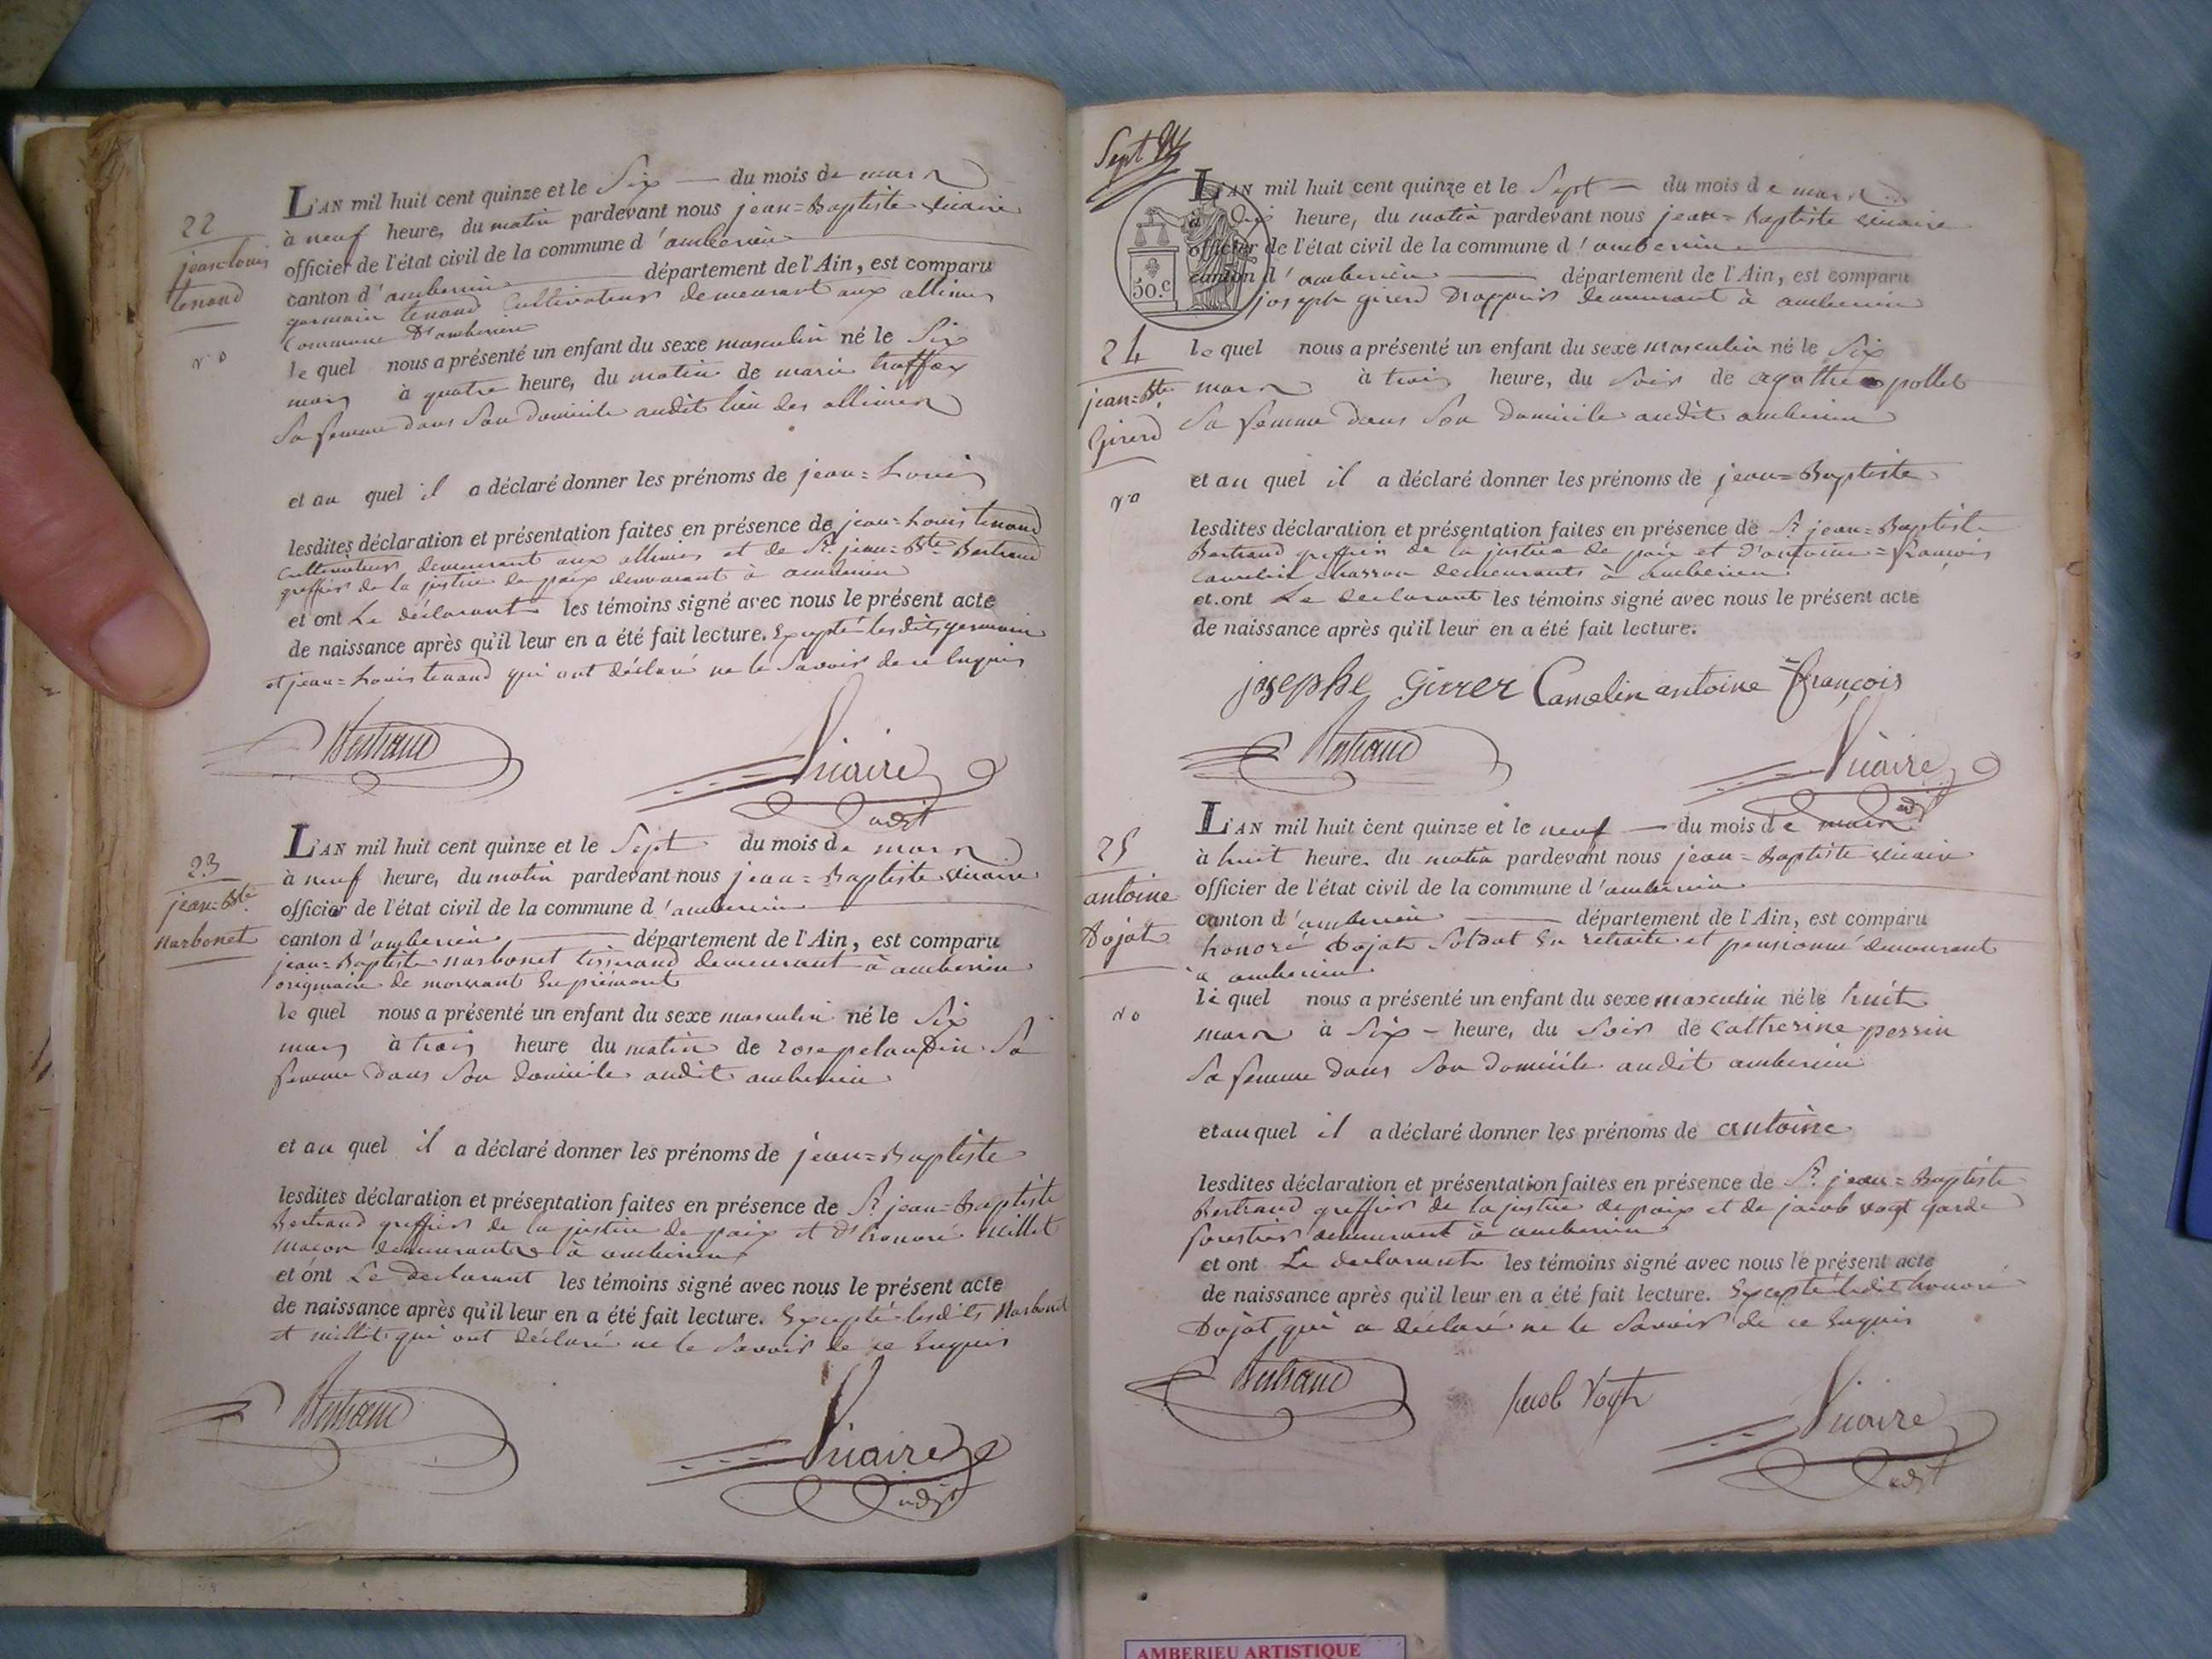 22
jean-louis
tenand
L'AN mil huit cent quinze et le Six — du mois de mars
à neuf heure, du matin pardevant nous jean=Baptiste vicaire
officier de l'état civil de la commune d'amberieu
canton d'amberieu département de l'Ain, est comparu
germain tenand Cultivateur demeurant aux allimes
Commune D'amberieu
le quel nous a présenté un enfant du sexe masculin né le Six
mars à quatre heure, du matin de marie
Sa femme dans Son Domicile audit lieu des allimes
et au quel il a déclaré donner les prénoms de jean=Louis
lesdites déclaration et présentation faites en présence de jean=Louis tenand
Cultivateur demeurant aux allimes et de Sr. jean=Bte Bertrand
greffier de la justice de paix demeurant à amberieu
et ont Le déclarant les témoins signé avec nous le présent acte
de naissance après qu'il leur en a été fait lecture. Excepté lesdits germain
et jean=Louis tenand qui ont déclaré ne le Savoir de ce Enquis
Bertrand
Vicaire
adjt
23
jean=Bte
Narbonet
L'AN mil huit cent quinze et le Sept du mois de mars
à neuf heure, du matin pardevant nous jean=Baptiste vicaire
officier de l'état civil de la commune d'amberieu
canton d'amberieu département de l'Ain, est comparu
jean=Baptiste narbonet tisserand demeurant à amberieu
originaire de En piémont
le quel nous a présenté un enfant du sexe masculin né le Six
mars à trois heure du matin de rose Sa
femme dans Son Domicile audit amberieu
et au quel il a déclaré donner les prénoms de jean=Baptiste
lesdites déclaration et présentation faites en présence de Sr. jean=Baptiste
Bertrand greffier de la justice de paix et d'honoré millet
maçon demeurants à amberieu
et ont Le déclarant les témoins signé avec nous le présent acte
de naissance après qu'il leur en a été fait lecture. Excepté lesdits Narbonet
et millet qui ont déclaré ne le Savoir de ce Enquis
Bertrand
Vicaire
adjt
Sept
50.c
L'AN mil huit cent quinze et le Sept — du mois de mars
à Dix heure, du matin pardevant nous jean=Baptiste vicaire
officier de l'état civil de la commune d'amberieu
canton d'amberieu département de l'Ain, est comparu
joseph girerd Drappier demeurant à amberieu
24
jean=Bte
Girerd
le quel nous a présenté un enfant du sexe masculin né le Six
mars à trois heure, du Soir de agathe pollet
Sa femme dans Son Domicile audit amberieu
et au quel il a déclaré donner les prénoms de jean=Baptiste
lesdites déclaration et présentation faites en présence de Sr. jean=Baptiste
Bertrand greffier de la justice de paix et d'antoine=françois
Camelin demeurants à amberieu
et ont Le déclarant les témoins signé avec nous le présent acte
de naissance après qu'il leur en a été fait lecture.
josephe girrer Camelin antoine=françois
Bertrand
Vicaire
adjt
25
antoine
Dojat
L'AN mil huit cent quinze et le neuf — du mois de mars
à huit heure, du matin pardevant nous jean=Baptiste vicaire
officier de l'état civil de la commune d'amberieu
canton d'amberieu département de l'Ain, est comparu
honoré Dojat Soldat En retraite et pensionné demeurant
à amberieu
le quel nous a présenté un enfant du sexe masculin né le huit
mars à Six — heure, du Soir de Catherine perrin
Sa femme dans Son Domicile audit amberieu
et au quel il a déclaré donner les prénoms de antoine
lesdites déclaration et présentation faites en présence de Sr. jean=Baptiste
Bertrand greffier de la justice de paix et de jacob vogt garde
forestier demeurant à amberieu
et ont Le déclarant les témoins signé avec nous le présent acte
de naissance après qu'il leur en a été fait lecture. Excepté ledit honoré
Dojat qui a déclaré ne le Savoir de ce Enquis
Bertrand
Jacob Vogt
Vicaire
adjt
AMBERIEU ARTISTIQUE